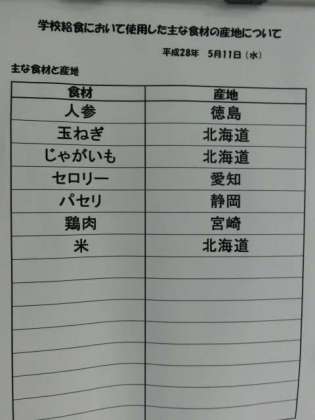 学校給食において使用した主な食材の産地について
平成28年 5月11日（水）
主な食材と産地
食材 産地
人参 徳島
玉ねぎ 北海道
じゃがいも 北海道
セロリー 愛知
パセリ 静岡
鶏肉 宮崎
米 北海道